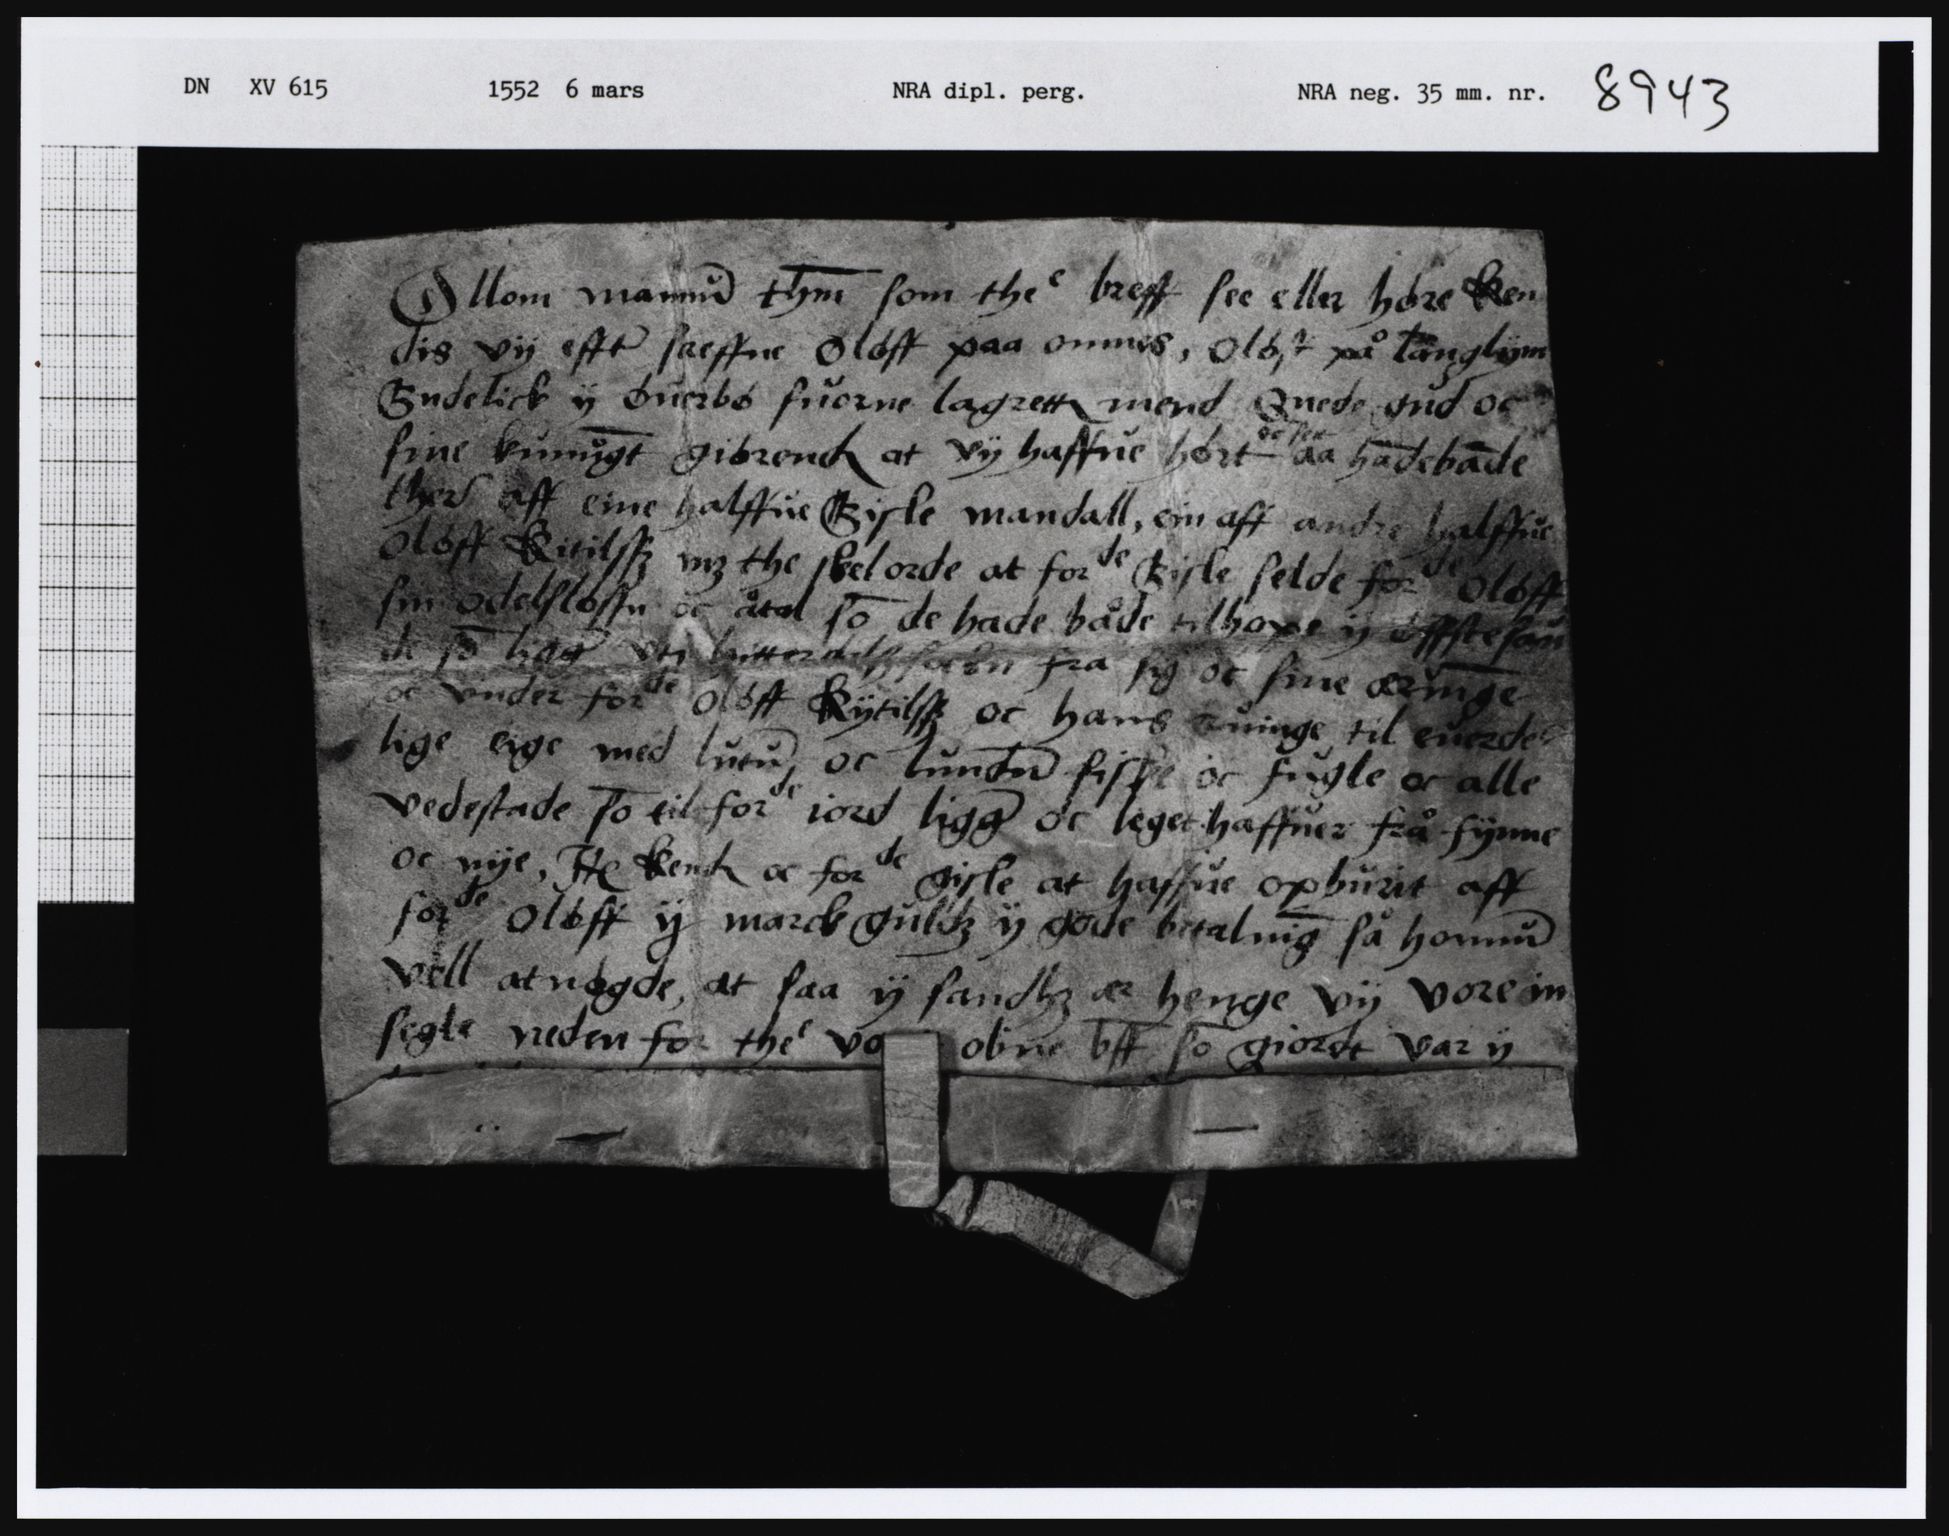 DN XV 615 1552 6 mars NRA dipl. perg. NRA neg. 35 mm. nr. 8943
Ollom mannum thm som the breff see eller høre Ken
dis vij efft screffne Oløff paa ommes, Oløff på langlijm
Gudelick ij øuerbø suorne lagrett mend Quede gud oc
sine kunnugt giørend at vij haffue hørt oc see aa hadebade
ther aff eine halffue Gisle mandall, ein aff andre halffue
Oløff Kitilss mz the skelorde at forde Gisle selde forde Oløff
sin odelsløssn oc åtal so de hade både tilhope ij
so ligg vti fra sig oc sine æruinge
oc vnder forde Oløff Kijtilss oc hans eruinge til euerde
lige eige med lutum oc lundum fiske oc fugle oc alle
vedestade so til forde iord ligg oc leget haffuer frå fijnne
oc nije, Kend oc forde gisle at haffue opburit aff
forde Oløff ij marck guldz ij gode betalning så honnum
vell atnøgde, at saa ij sandhz ær henge vij vore in
segle neden for the obne bff so giordt var ij